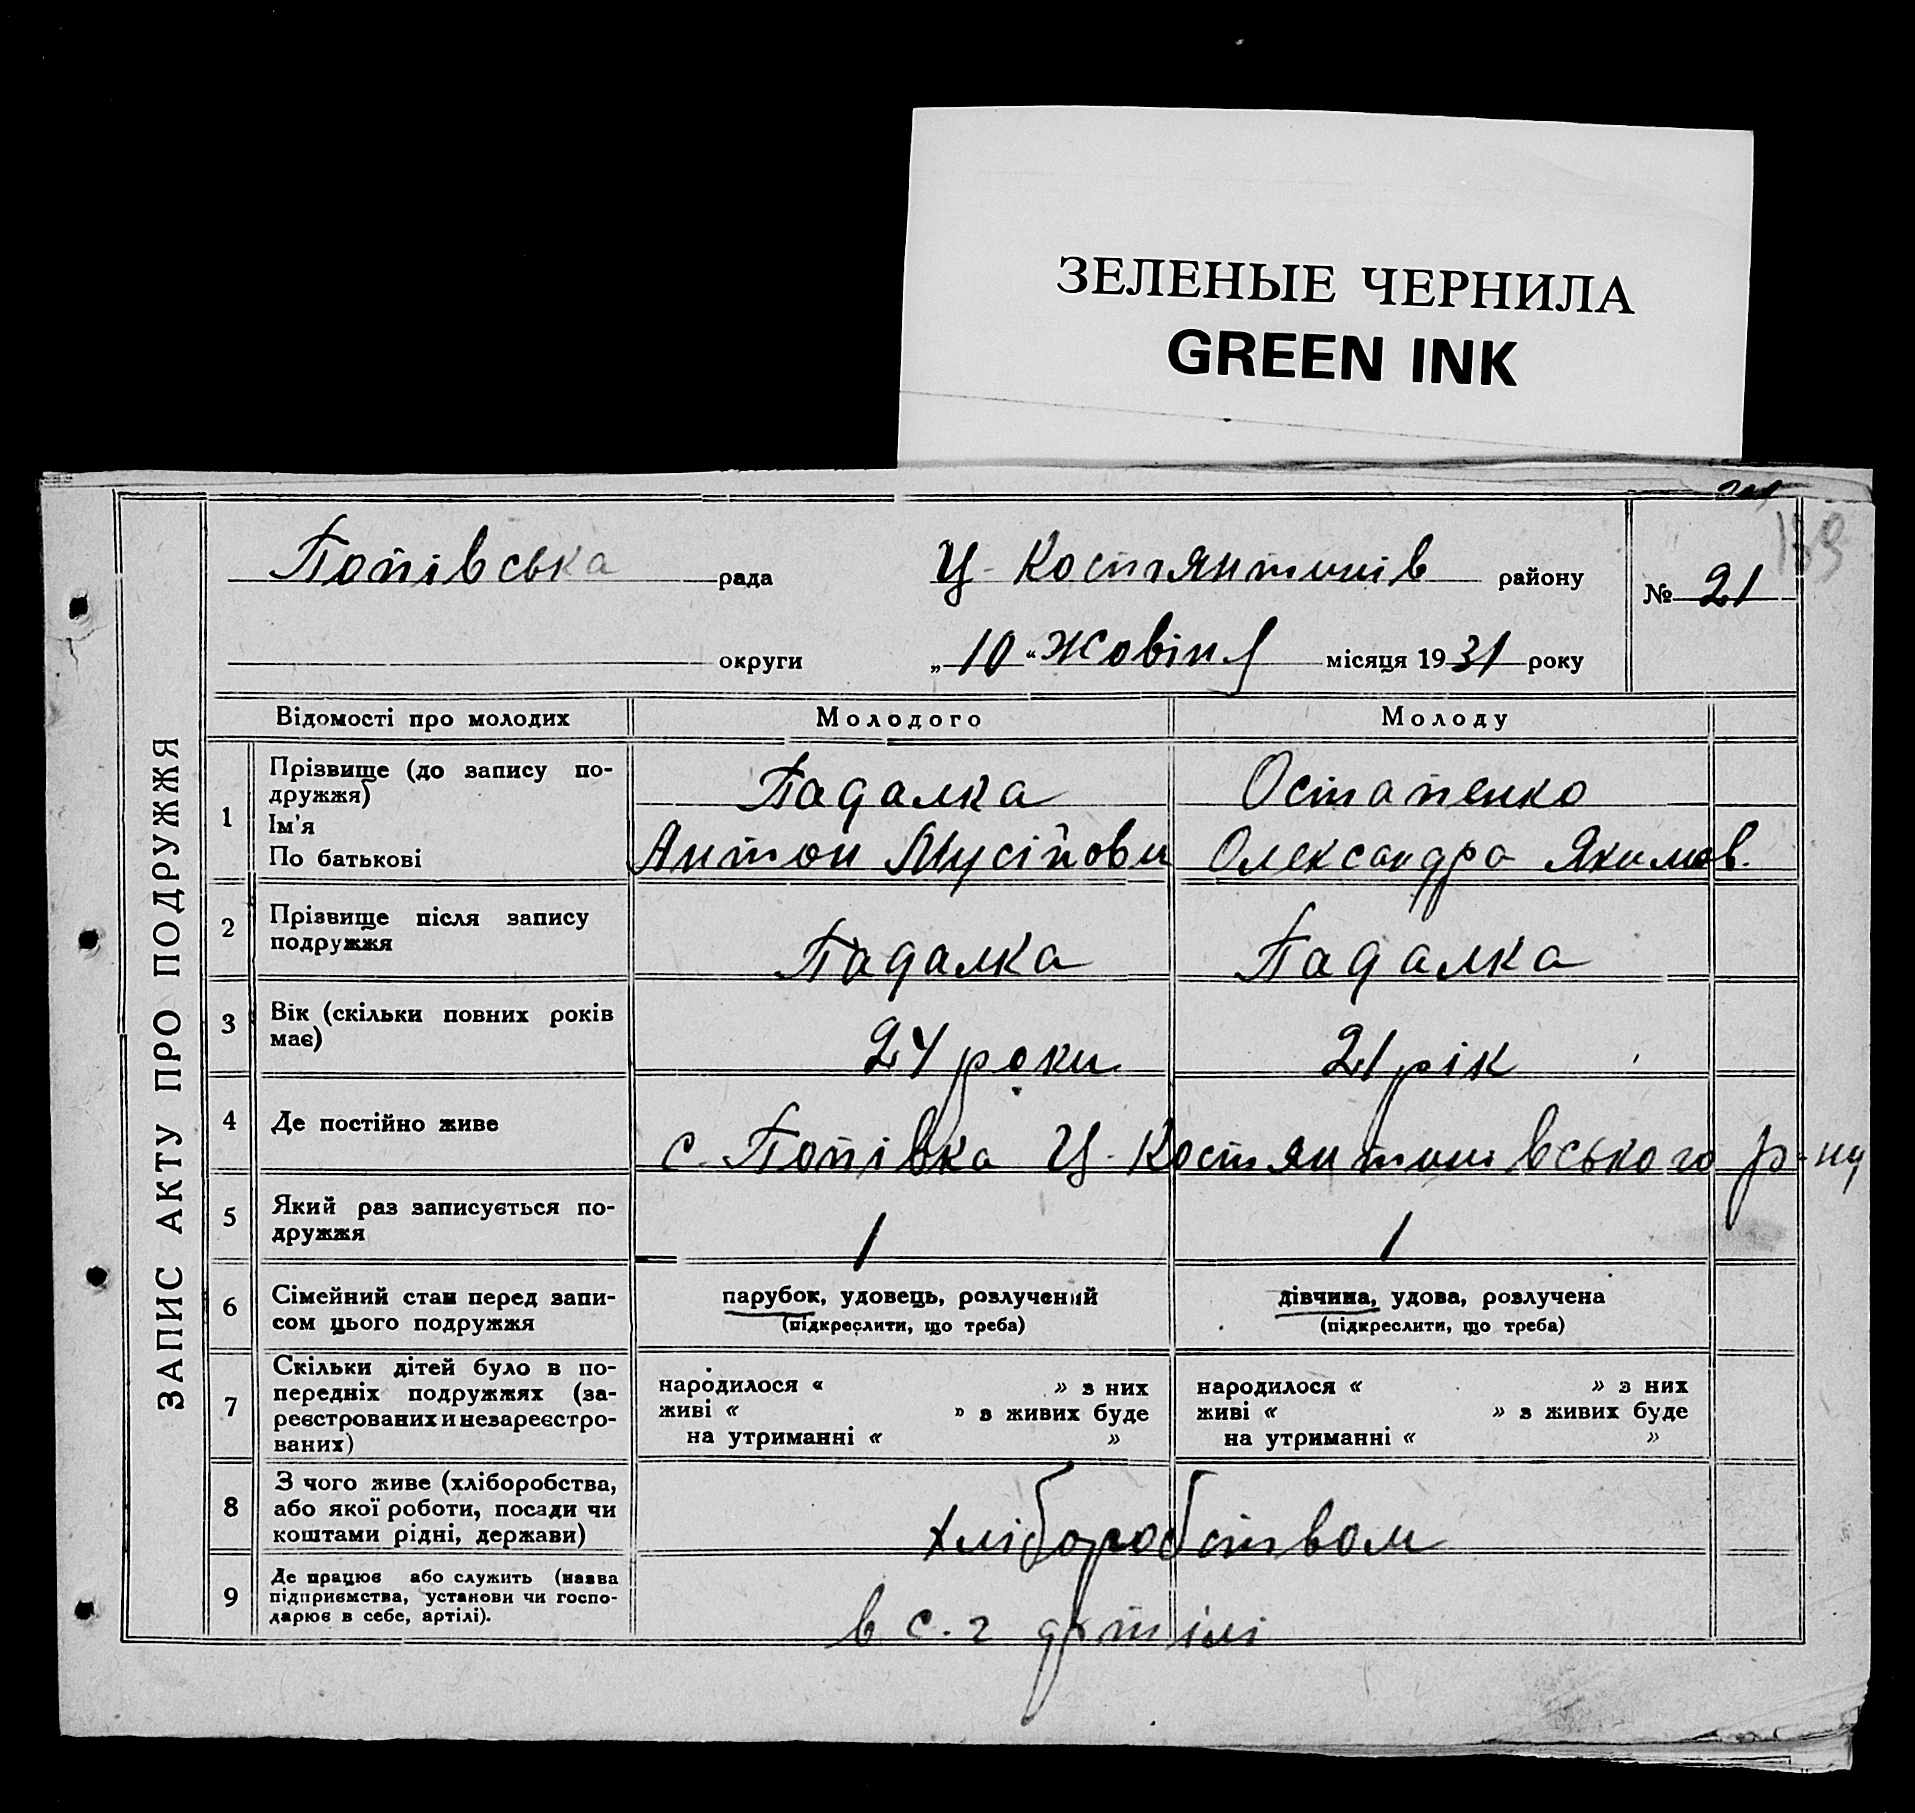 ЗЕЛЕНЫЕ ЧЕРНИЛА
GREEN INK
139
ЗАПИС АКТУ ПРО ПОДРУЖЖЯ
Попівська рада Ц-Костянтинів району
№ 21
округи „10“ Жовтня місяця 1931 року
Відомості про молодих Молодого Молоду
1 Прізвище (до запису по-
дружжя) Падалка Остапенко
Ім'я
По батькові Антон Мусійови Олександра Якимов.
2 Прізвище після запису
подружжя Падалка Падалка
3 Вік (скільки повних років
має) 24 роки 21 рік
4 Де постійно живе с. Попівка Ц-Костянтинівського р-ну
5 Який раз записується по-
дружжя 1 1
6 Сімейний стан перед запи-
сом цього подружжя
парубок, удовець, розлучений
(підкреслити, що треба)
дівчина, удова, розлучена
(підкреслити, що треба)
7 Скільки дітей було в по-
передніх подружжях (за-
реєстрованих и незареєстро-
ваних)
народилося « » з них
живі « » з живих буде
на утриманні « »
народилося « » з них
живі « » з живих буде
на утриманні « »
8 З чого живе (хліборобства,
або якої роботи, посади чи
коштами рідні, держави)
хліборобством
9 Де працює або служить (назва
підприємства, установи чи госпо-
дарює в себе, артілі).
в с.г артілі